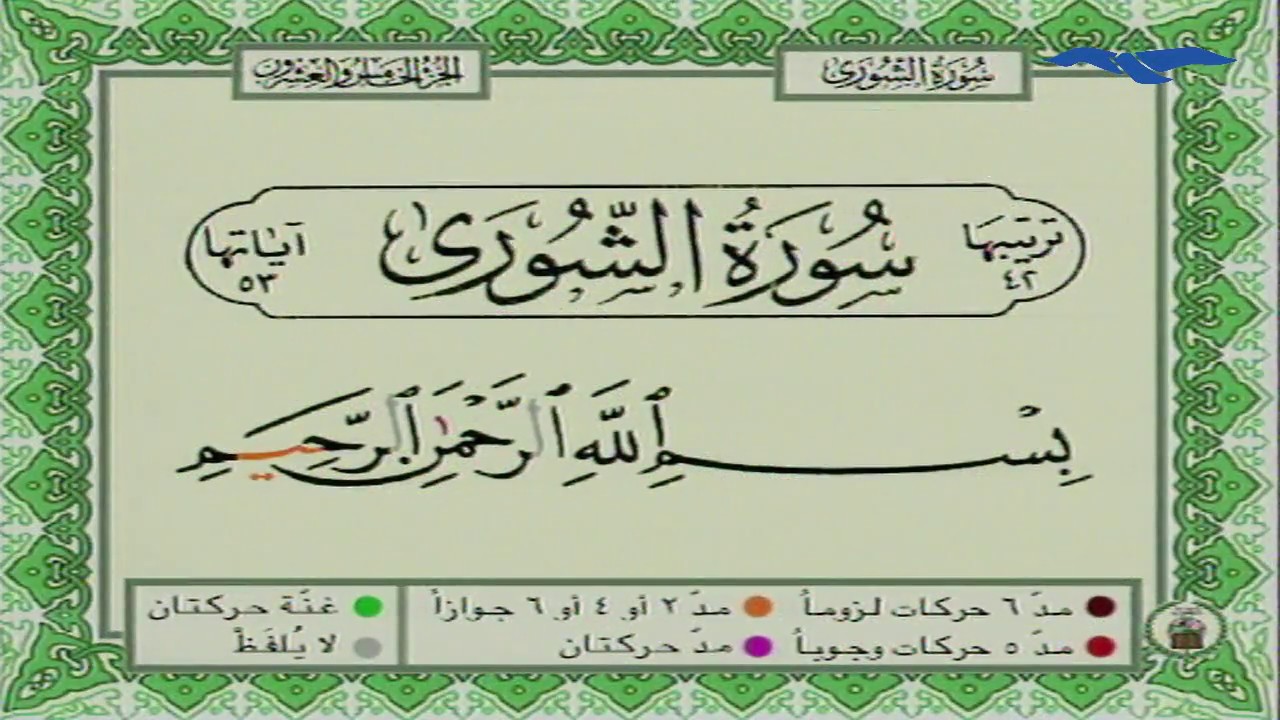 سُورَةُ الشُّورَىٰ
الجُزْءُ الخَامِسُ وَالعِشْرُونَ
تَرتيبُهَا
٤٢
سُورَةُ الشُّورَىٰ
آيَاتهَا
٥٣
بِسْمِ ٱللَّهِ ٱلرَّحْمَٰنِ ٱلرَّحِيمِ
مدّ ٦ حركات لزوماً
مدّ ٢ أو ٤ أو ٦ جوازاً
غنّة حركتان
مدّ ٥ حركات وجوباً
مدّ حركتان
لا يُلفَظُ